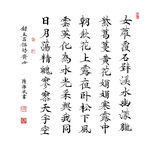 女蘿覆石壁溪水幽濛朧
紫葛蔓黃花娟娟寒露中
朝飲花上露夜臥松下風
雲英化為水光采與我同
日月蕩精魄寥寥天宇空